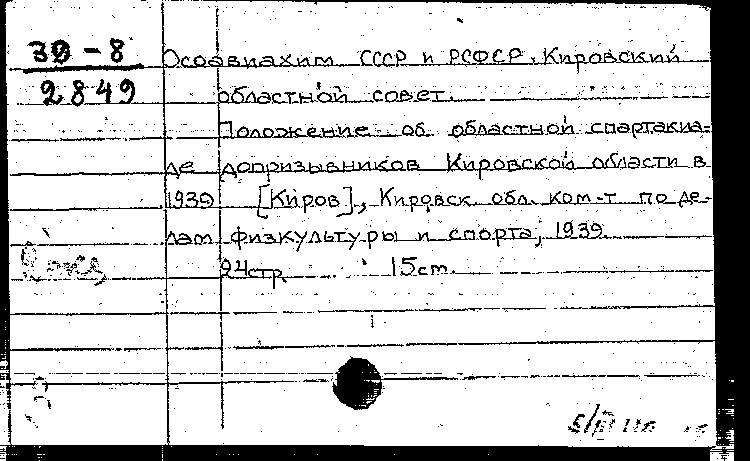 39-8 Осоавиахим СССР и РСФСР. Кировский
2849 областной совет.
Положение об областной спартакиа-
де допризывников Кировской области в
1939 [Киров], Кировск. обл. ком-т по де-
лам физкультуры и спорта, 1939.
2 экз
24стр. 15см.
5/III